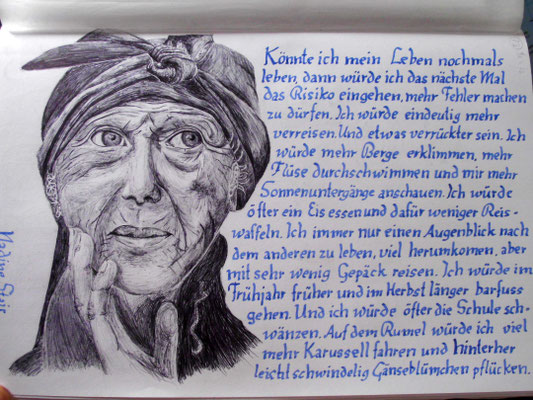 Könnte ich mein Leben nochmals
leben, dann würde ich das nächste Mal
das Risiko eingehen, mehr Fehler machen
zu dürfen. Ich würde eindeutig mehr
verreisen. Und etwas verrückter sein. Ich
würde mehr Berge erklimmen, mehr
Flüse durchschwimmen und mir mehr
Sonnenuntergänge anschauen. Ich würde
öfter ein Eis essen und dafür weniger Reis-
waffeln. Ich immer nur einen Augenblick nach
dem anderen zu leben, viel herumkomen, aber
mit sehr wenig Gepäck reisen. Ich würde im
Frühjahr früher und im Herbst länger barfuss
gehen. Und ich würde öfter die Schule sch-
wänzen. Auf dem Rumel würde ich viel
mehr Karussell fahren und hinterher
leicht schwindelig Gänseblümchen pflücken.
Nadine Stair